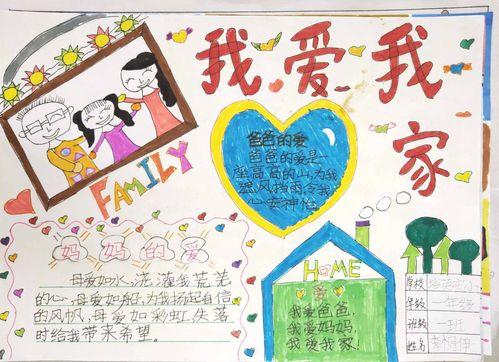 我爱我家
FAMILY
爸爸的爱
爸爸的爱是一
座高高的山,为我
遮风挡雨,令我
心旷神怡
妈妈的爱
母爱如水,浇灌我荒芜
的心,母爱如船,为我扬起自信
的风帆,母爱如彩虹,失落
时给我带来希望。
HOME
爱
我爱爸爸,
我爱妈妈,
我爱我家!
学校
年级 一年级
班级 一班
姓名